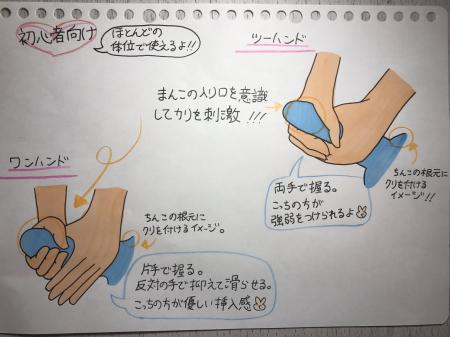 初心者向け
ほとんどの
体位で使えるよ!!
ツーハンド
まんこの入り口を意識
してカリを刺激!!!
ワンハンド
ちんこの根元に
クリを付ける
イメージ!!
両手で握る。
こっちの方が
強弱をつけられるよ
ちんこの根元に
クリを付けるイメージ。
片手で握る。
反対の手で抑えて滑らせる。
こっちの方が優しい挿入感